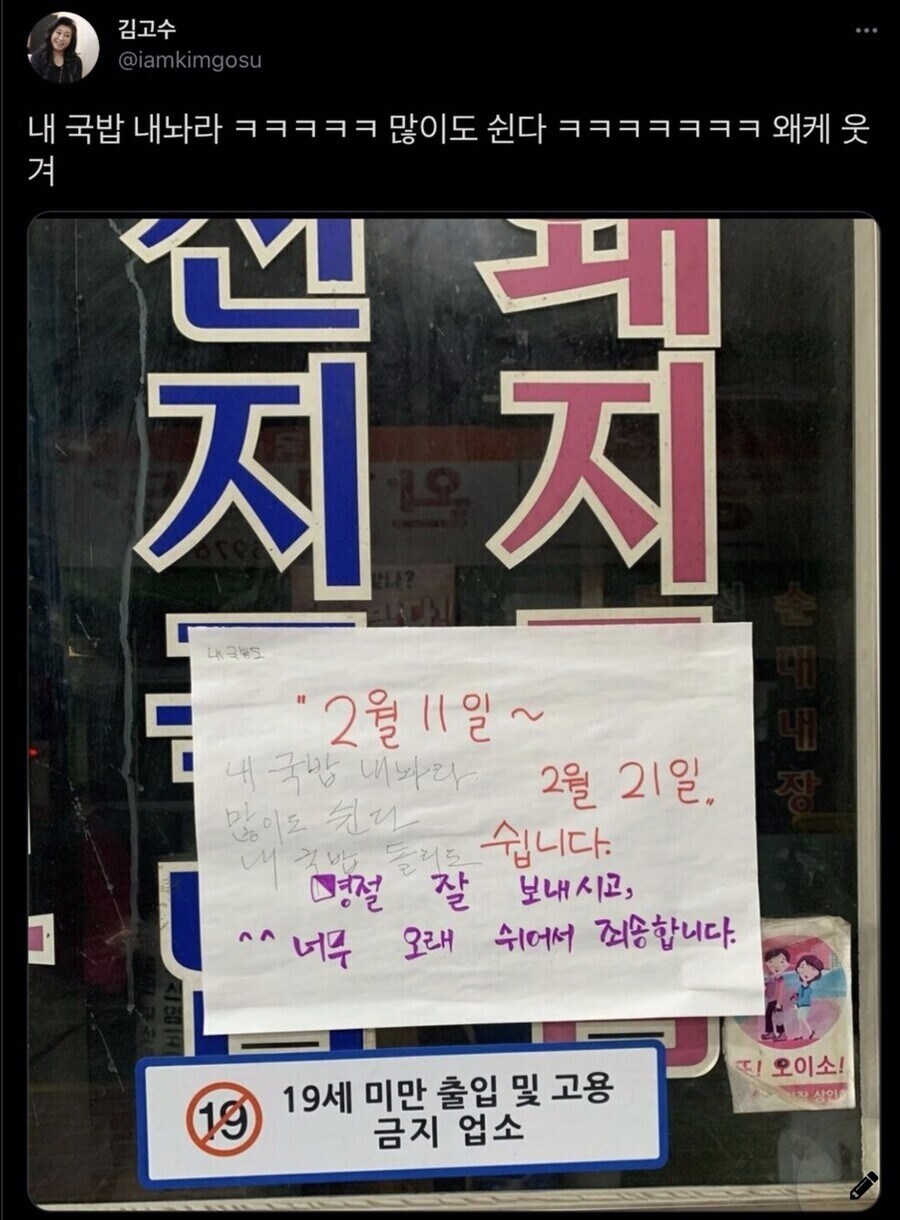 김고수
@iamkimgosu
내 국밥 내놔라 ㅋㅋㅋㅋㅋ 많이도 쉰다 ㅋㅋㅋㅋㅋㅋㅋ 왜케 웃
겨
선 돼
지 지
내 국밥도
"2월 11일 ~
내 국밥 내놔라
2월 21일"
많이도 쉰다
쉽니다.
내 국밥 돌리도
명절 잘 보내시고,
^^ 너무 오래 쉬어서 죄송합니다.
순대내장
또! 오이소!
19
19세 미만 출입 및 고용
금지 업소